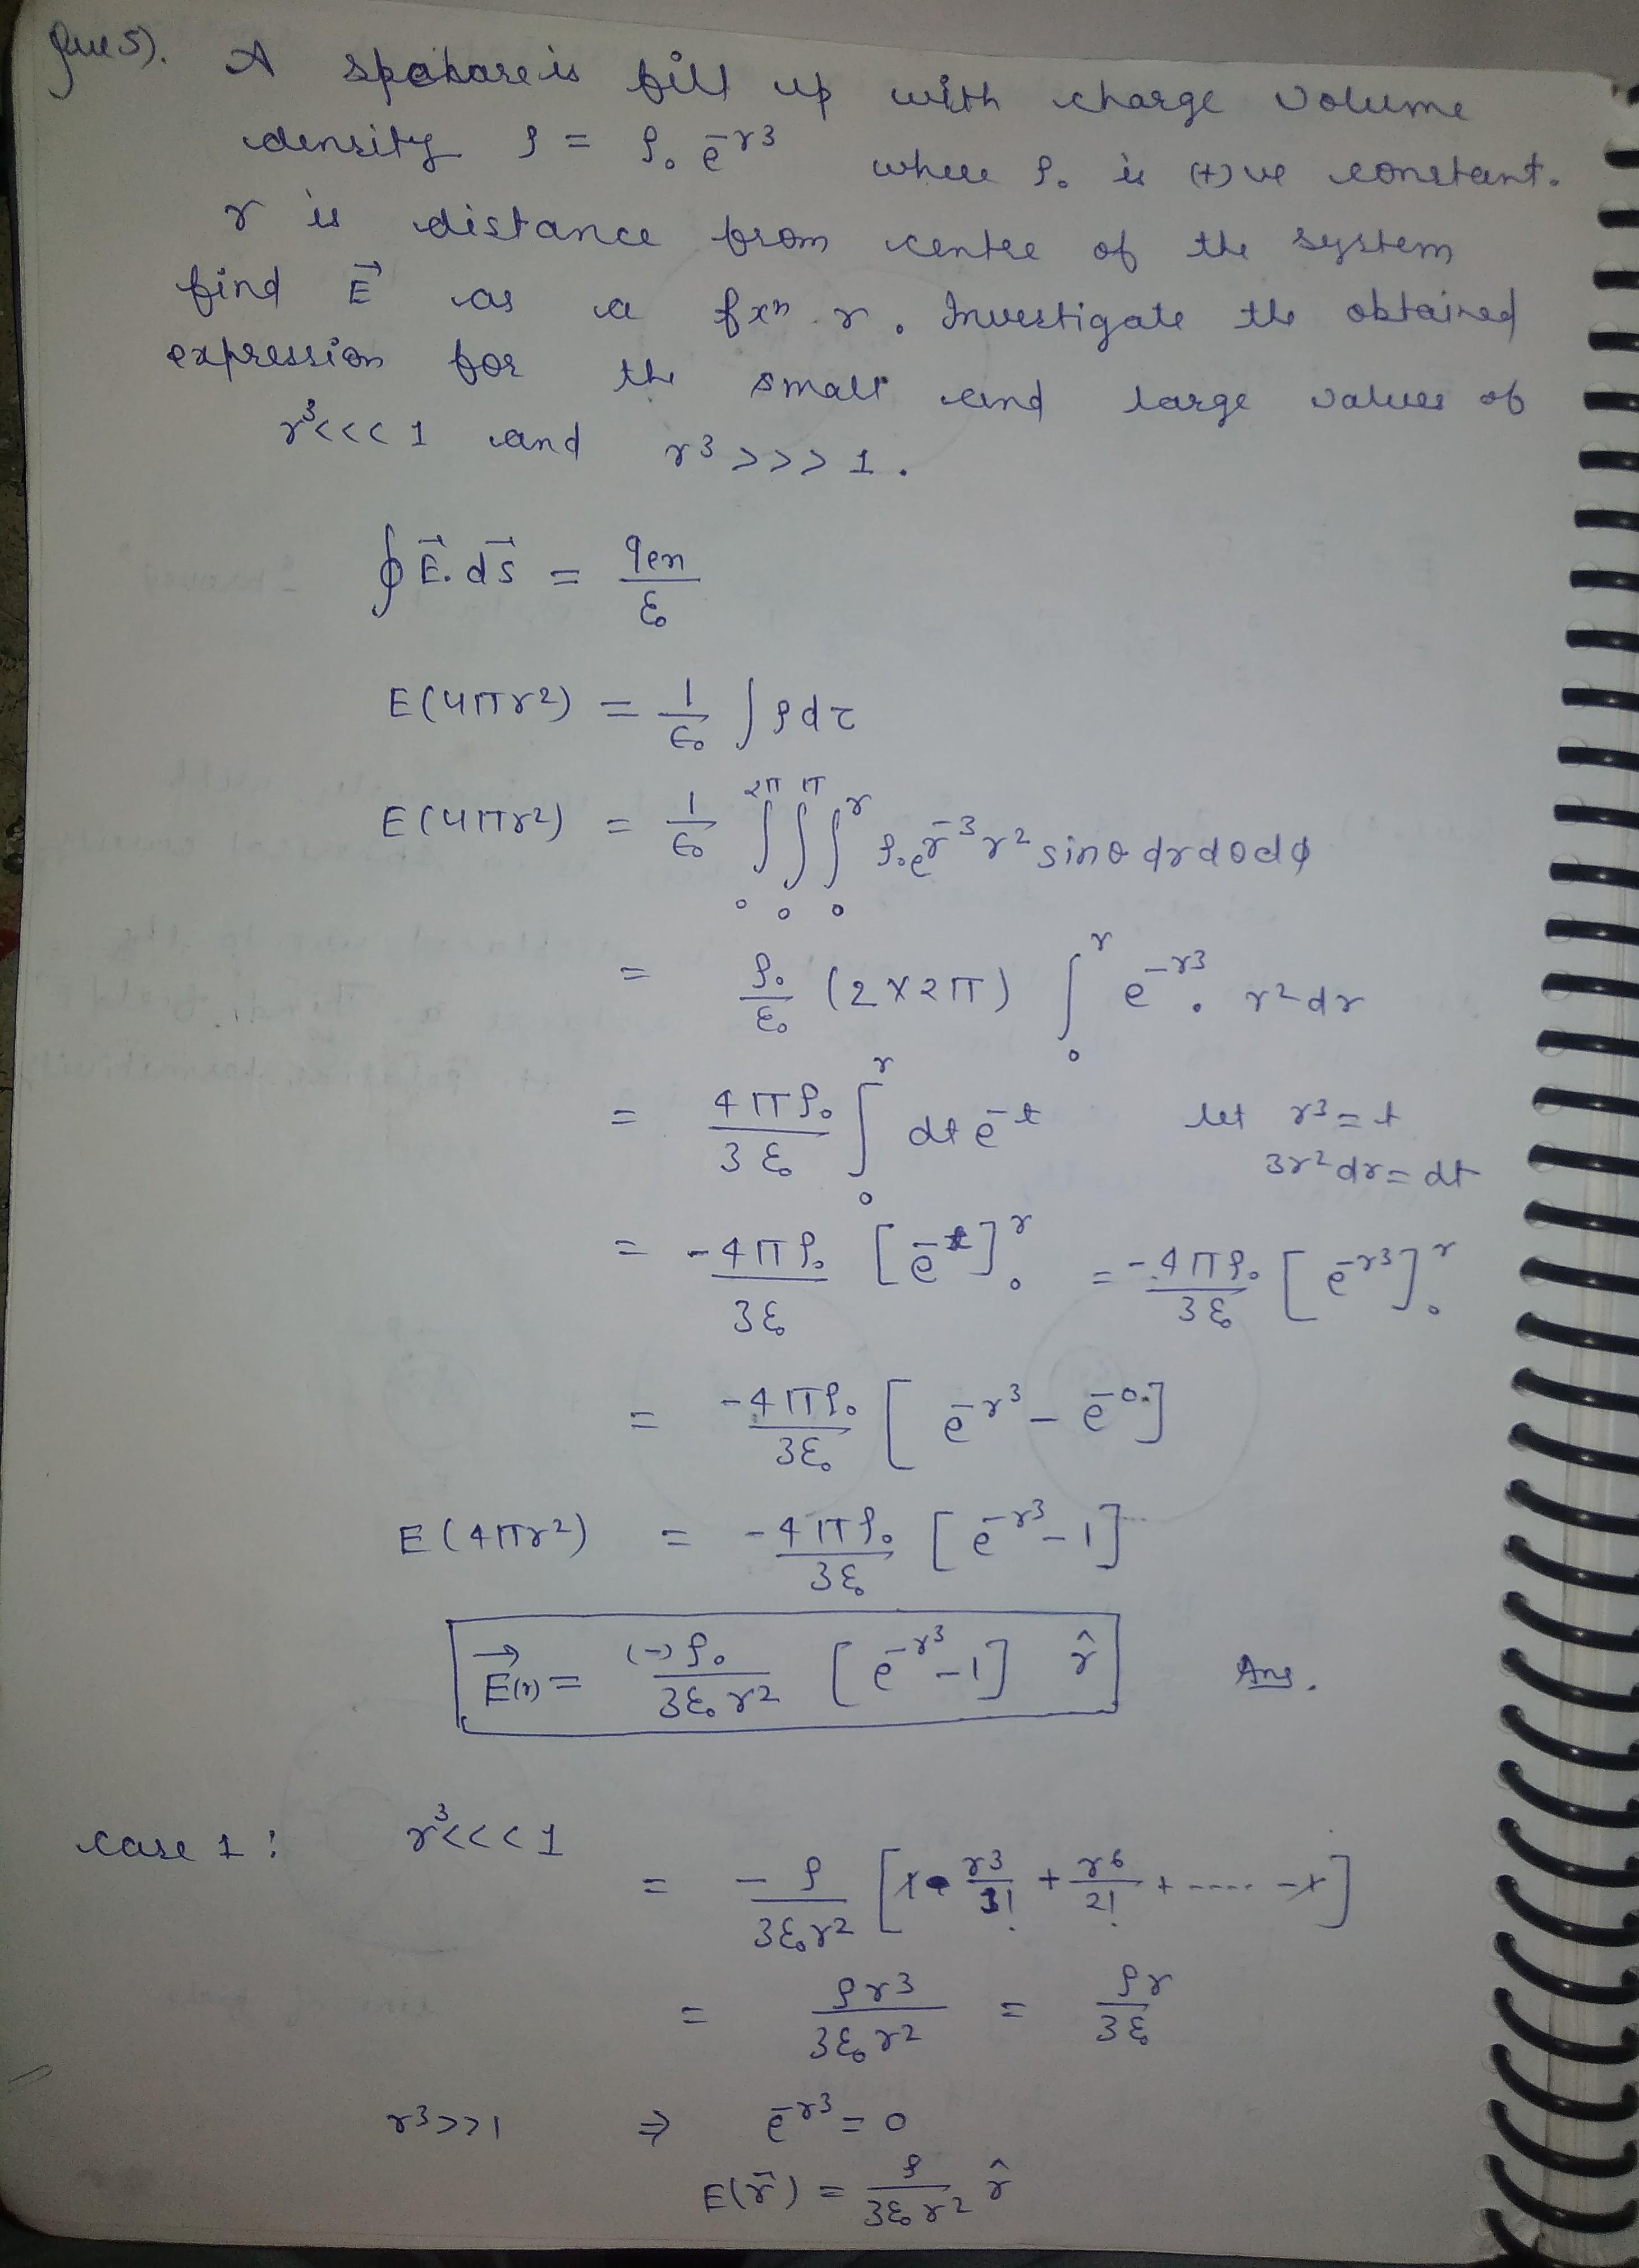 Ques). A sphare is fill up with charge volume
density ρ = ρ₀ e^-r3 where ρ₀ is (+)ve constant.
r is distance from centre of the system
find E⃗ as a fxⁿ r. Investigate the obtained
expression for the small and large values of
r³<<<1 and r3>>>1.
∮ E⃗.ds⃗ = qen/ε₀
E(4πr²) = 1/ε₀ ∫ρdτ
E(4πr²) = 1/ε₀ ∫₀^2π ∫₀^π ∫₀^r ρ₀e^r-3 r² sinθ drdθdϕ
= ρ₀/ε₀ (2×2π) ∫₀^r e^-r3. r²dr
= 4πρ₀/3ε₀ ∫₀^r dt e^-t let r3=t
3r²dr=dt
= -4πρ₀/3ε₀ [e^-t]₀^r = -4πρ₀/3ε₀ [e^-r3]₀^r
= -4πρ₀/3ε₀ [e^-r3 - e^-0]
E(4πr²) = -4πρ₀/3ε₀ [e^-r3 -1]
E⃗(r) = (-)ρ₀/3ε₀r² [e^-r3 -1] r̂ Ans.
case 1: r³<<<1
= -ρ/3ε₀r² [1- r3/1! + r6/2! + .... -1]
= ρr3/3ε₀r² = ρr/3ε₀
r3>>1 ⇒ e^-r3 = 0
E(r⃗) = ρ/3ε₀r² r̂